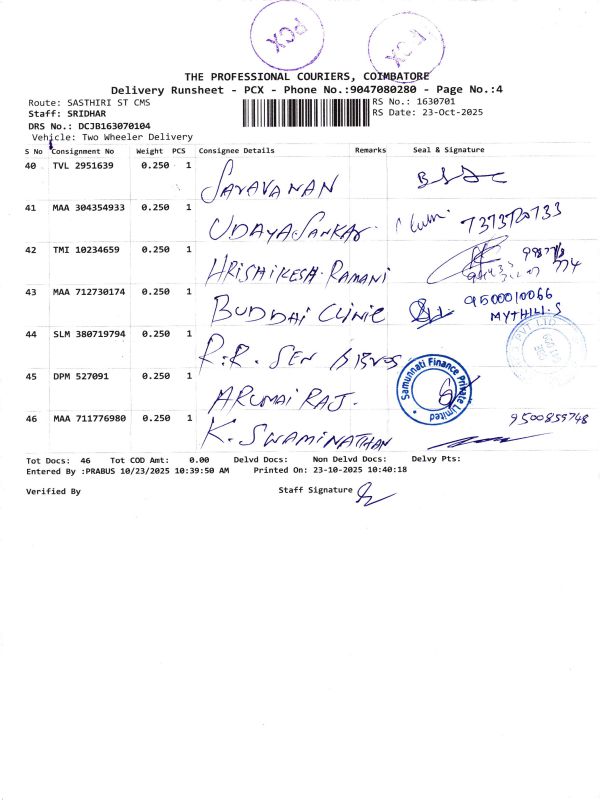 PCX
PCX
THE PROFESSIONAL COURIERS, COIMBATORE
Delivery Runsheet - PCX - Phone No.:9047080280 - Page No.:4
Route: SASTHIRI ST CMS RS No.: 1630701
Staff: SRIDHAR RS Date: 23-Oct-2025
DRS No.: DCJB163070104
Vehicle: Two Wheeler Delivery
S No Consignment No Weight PCS Consignee Details Remarks Seal & Signature
40 TVL 2951639 0.250 1 SARAVANAN
41 MAA 304354933 0.250 1 UDAYASANKAR 7373720733
42 TMI 10234659 0.250 1 HRISHIKESH RAMANI
43 MAA 712730174 0.250 1 BUDDAI CLINIC 9500010066
MYTHILI.S
44 SLM 380719794 0.250 1 R.R. SEN & BROS
PVT LTD
45 DPM 527091 0.250 1 ARUMAI RAJ.
Samunnati Finance Private Limited
46 MAA 711776980 0.250 1 K. SWAMINATHAN 9500859748
Tot Docs: 46 Tot COD Amt: 0.00 Delvd Docs: Non Delvd Docs: Delvy Pts:
Entered By :PRABUS 10/23/2025 10:39:50 AM Printed On: 23-10-2025 10:40:18
Verified By Staff Signature